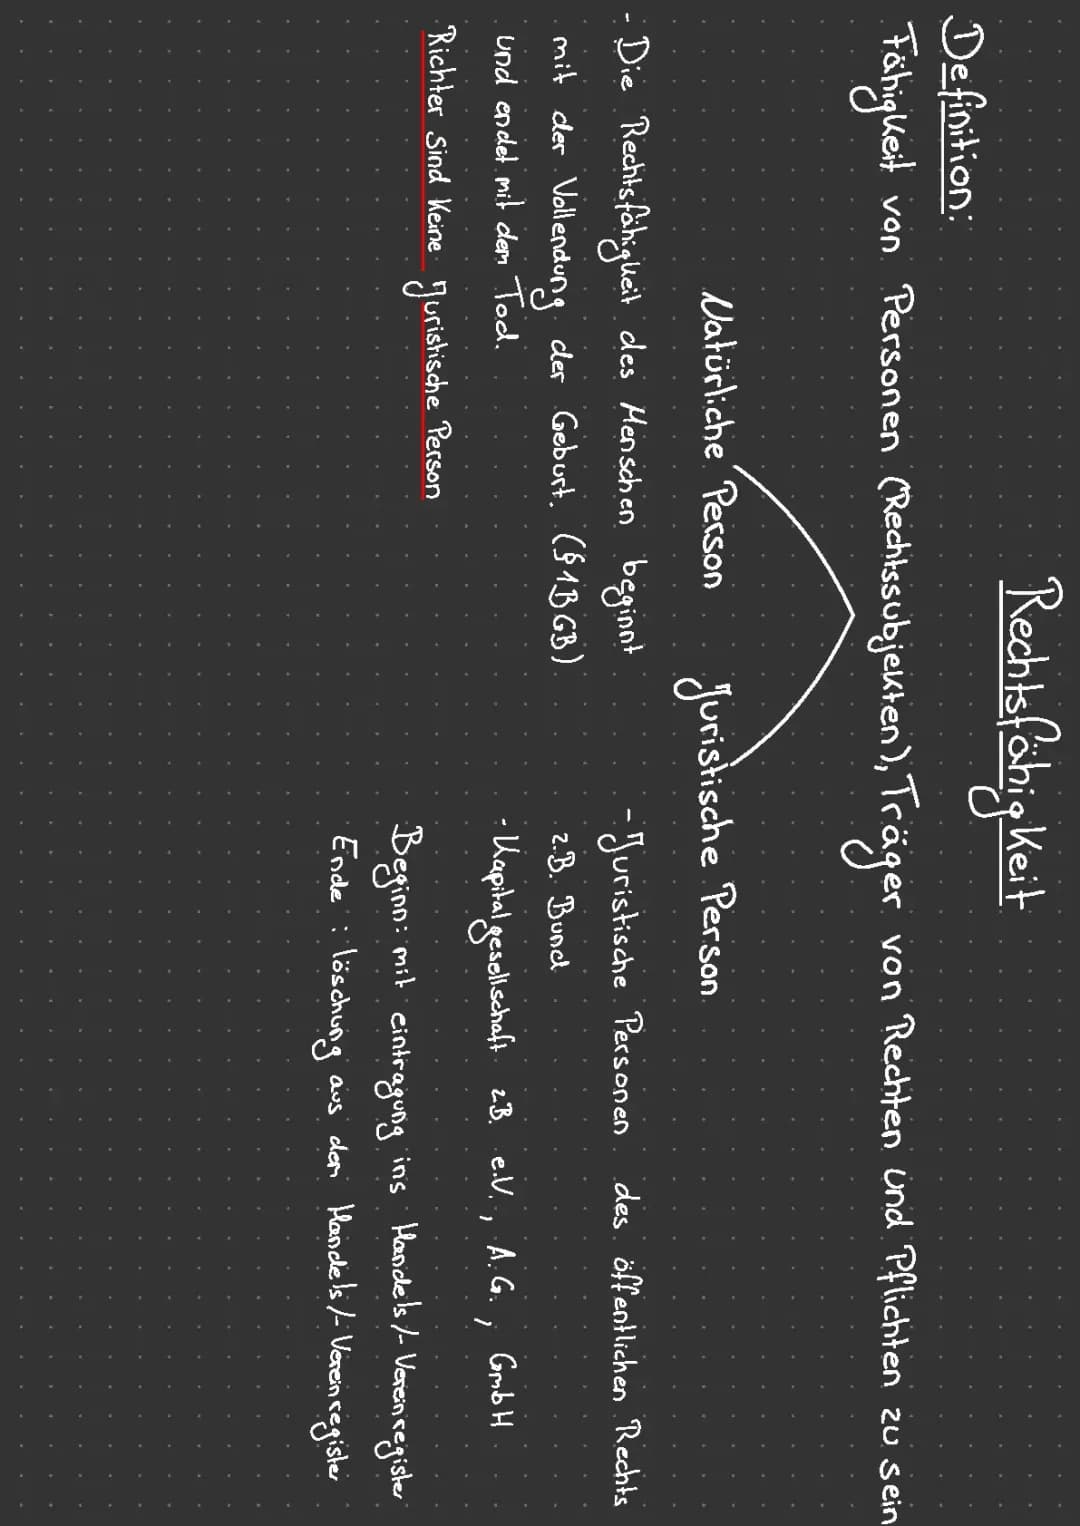 Rechtsfähigkeit
Definition:
Fähigkeit von Personen (Rechtssubjekten), Träger von Rechten und Pflichten zu sein
Natürliche Person
Juristische Person
- Die Rechtsfähigkeit des Menschen beginnt
mit der Vollendung der Geburt. (§1BGB)
und endet mit dem Tod.
Richter sind keine Juristische Person
- Juristische Personen des öffentlichen Rechts
z.B. Bund
- Kapitalgesellschaft z.B. e.V., A.G., GmbH
Beginn: mit eintragung ins Handels/-Vereinregister
Ende: löschung aus dem Handels/-Vereinregister